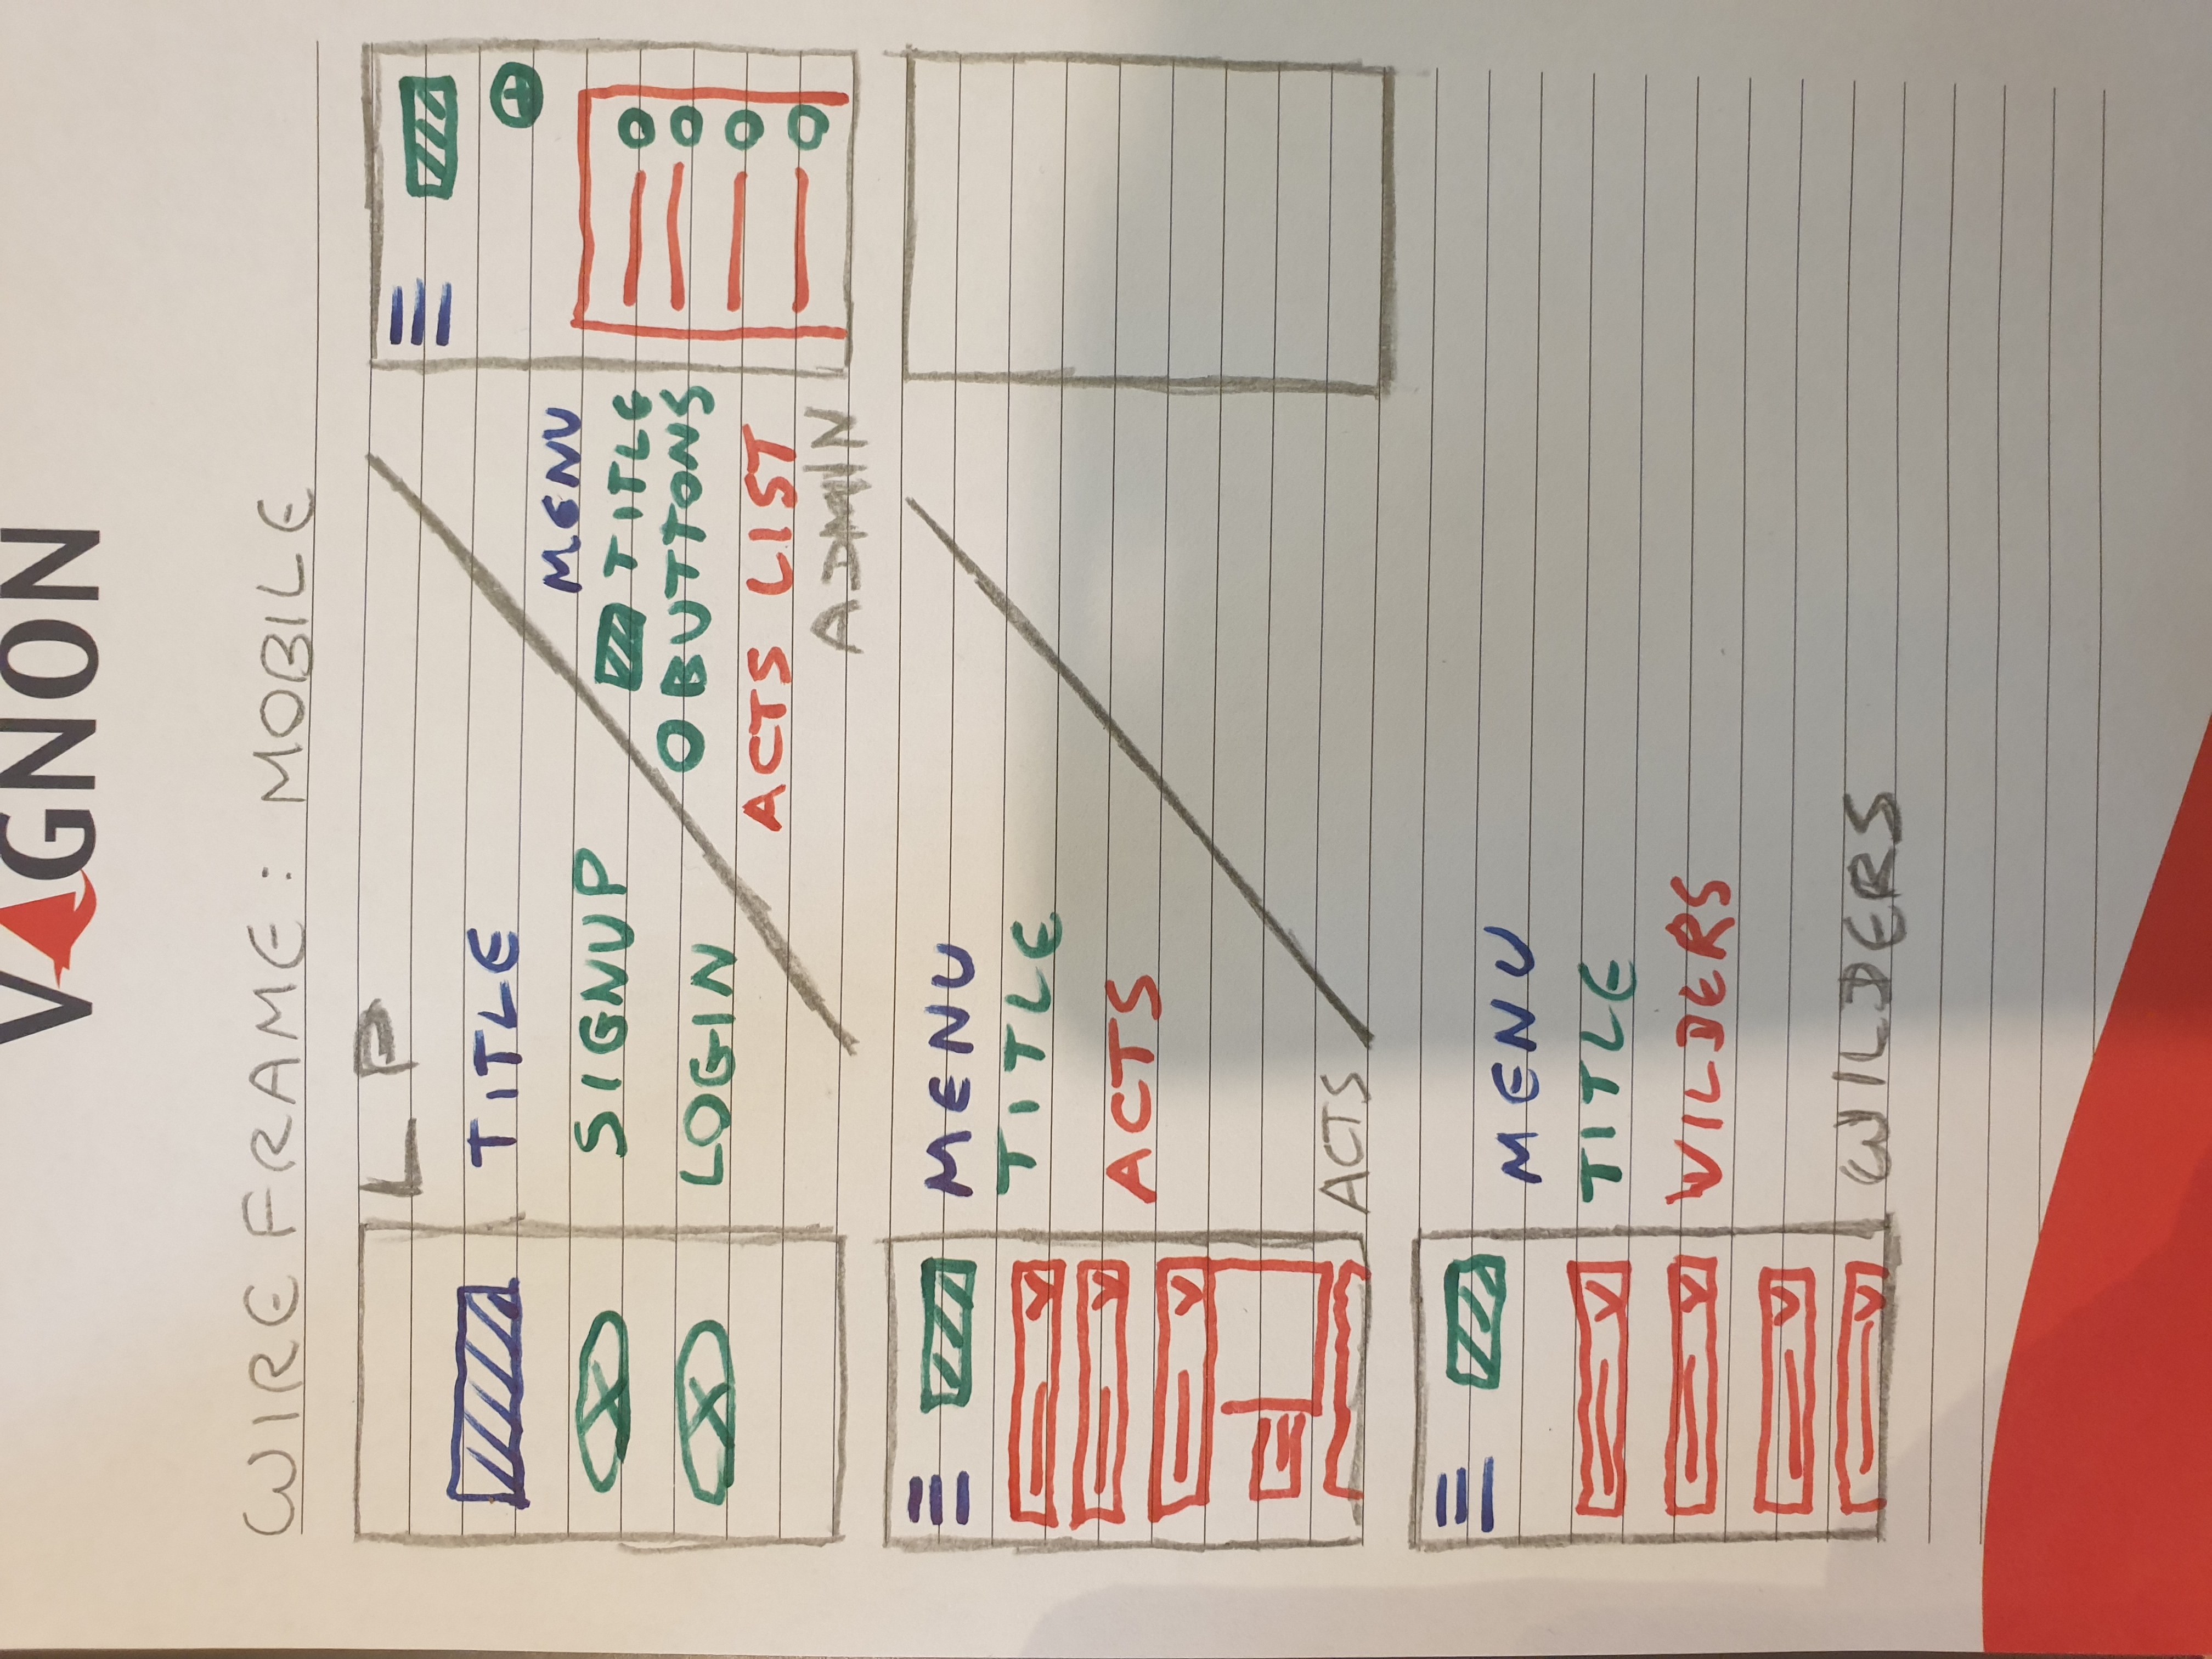 VAGNON
WIREFRAME: MOBILE
LP
TITLE
SIGNUP
LOGIN
MENU
TITLE
BUTTONS
ACTS LIST
ADMIN
MENU
TITLE
ACTS
ACTS
MENU
TITLE
WILDERS
WILDERS